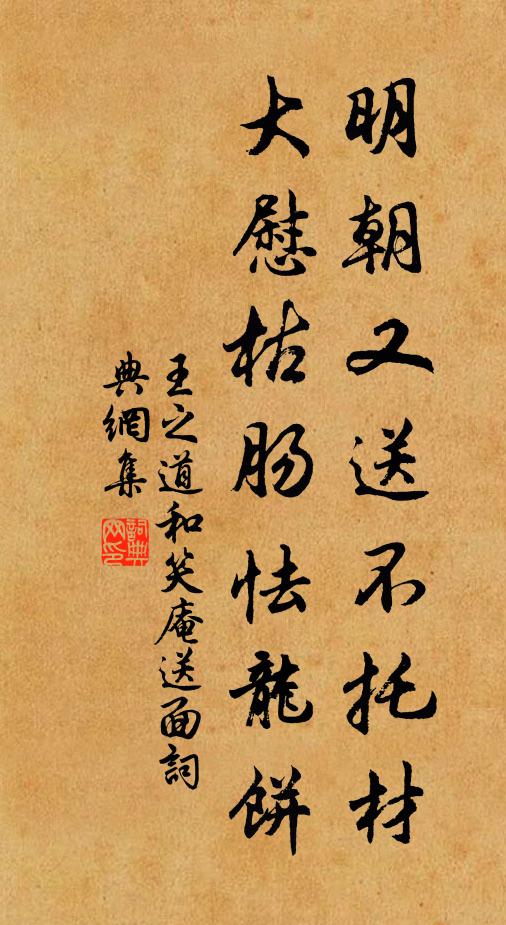 明朝又送不托材
大慰枯肠怯龍餅
王之道和笑庵送面詞
典網集
詞典網印